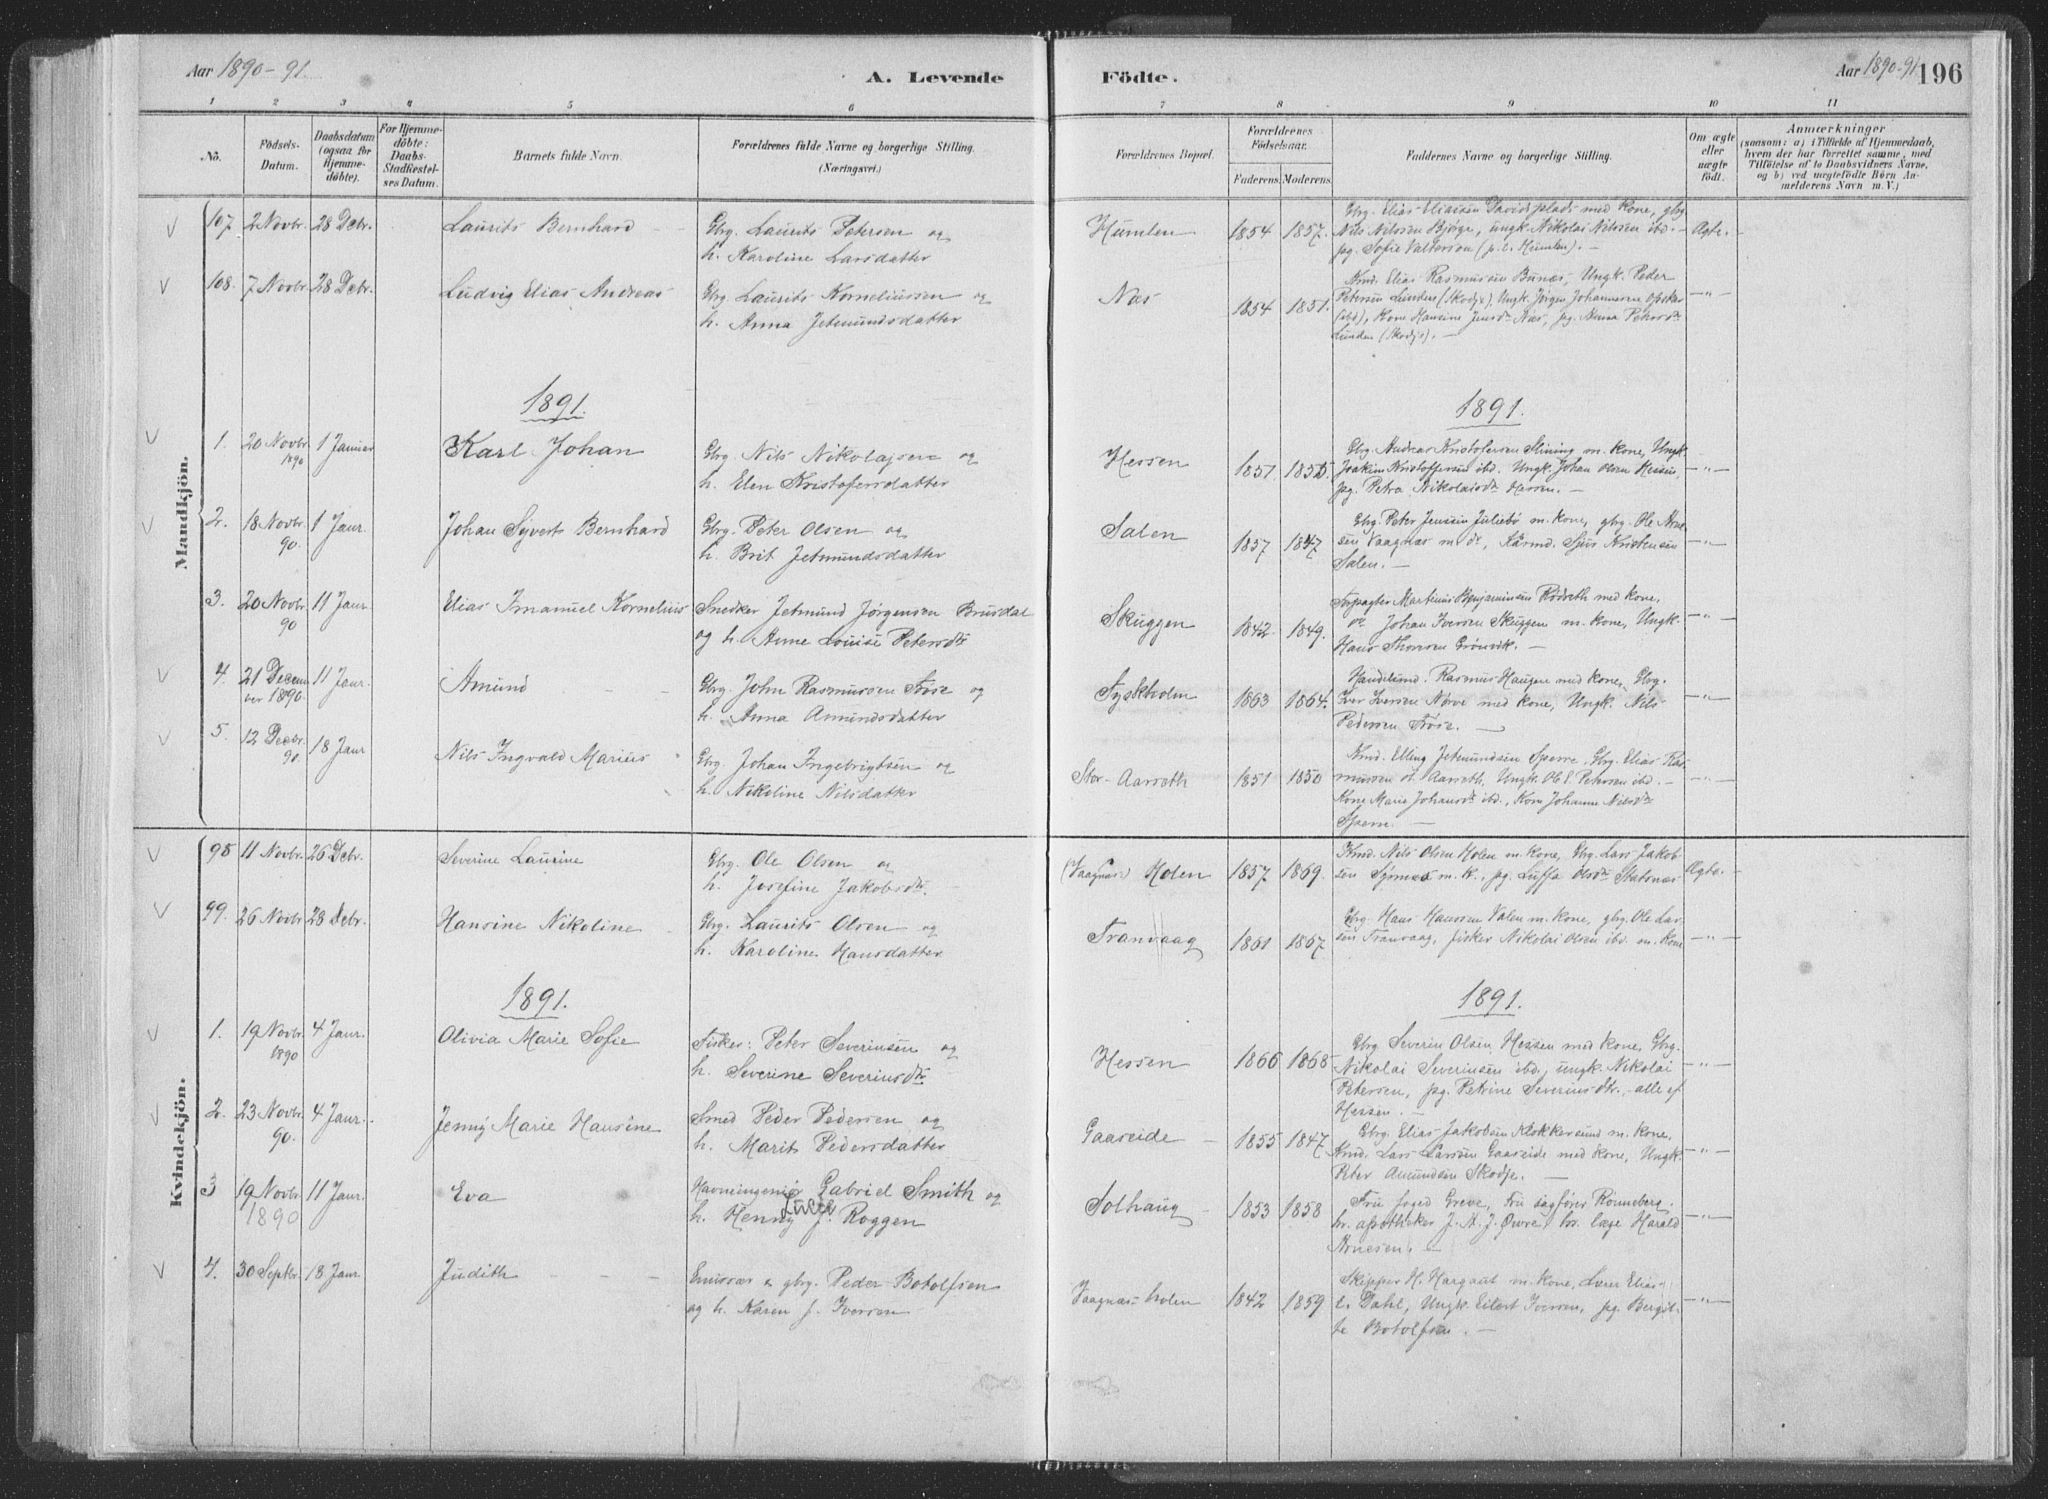 Aar 1890-91.
A. Levende
Födte.
Aar 1890-91
196
1 2 3 4 5 6 7 8 9 10 11
No.
Födsels-
Datum.
Daabsdatum
(ogsaa for
Hjemme-
döbte).
For Hjemme-
döbte:
Daabs-
Stadfæstel-
ses Datum.
Barnets fulde Navn.
Forældrenes fulde Navne og borgerlige Stilling.
(Næringsvei.)
Forældrenes Bopæl.
Forældrenes
Födselsaar.
Faderens. Moderens.
Faddernes Navne og borgerlige Stilling.
Om ægte
eller
uægte
födt.
Anmærkninger
(saasom: a) i Tilfælde af Hjemmedaab,
hvem der har forrettet samme, med
Tilföielse af to Daabsvidners Navne,
og b) ved uægtefödte Börn An-
melderens Navn m. V.)
Mandkjön.
107. 2 Novbr. 28 Debr. Laurits Bernhard Gbrg. Laurits Petersen og
h. Karoline Larsdatter
Humlen 1854 1857. Gbrg. Elias Eliassen Davidsplads med Kone, gbrg
Nils Nilssen Bjørge, ungk. Nikolai Nilssen ibd. -
pg. Sofie Valterson (p.t. Humlen). -
Ægte.
108. 7 Novbr. 28 Debr. Ludvig Elias Andreas Gbrg. Laurits Korneliussen og
h. Anna Jetmundsdatter
Næs 1854 1851. Kmd. Elias Rasmussen Bunæs, Ungk. Peder
Petersen Lunden (Skodje), Ungk. Jørgen Johannesen
(ibd), Kone Hansine Jensdr. Næs, pg. Anna Petersdr.
Lunden (Skodje). -
-"-
1891.
1891.
1. 20 Novbr. 1890 1 Januar Karl Johan Gbrg. Nils Nikolajsen og
h. Elen Kristofersdatter
Hessen 1851 1855. Gbrg. Andreas Kristofersen Slining m. Kone, Ungk.
Joakim Kristoffersen ibd. Ungk. Johan Olsen Hessen,
pg. Petra Nikolaisdr. Hessen. -
-"-
2. 18 Novbr. 90. 1 Janr. Johan Syvert Bernhard Gbrg. Peter Olsen og
h. Brit Jetmundsdatter
Salen 1857 1847 Gbrg. Peter Jenssen Juliebø m. Kone, gbrg. Ole Arne-
sen Vaagnæs m. do, Kårmd. Sjur Kristensen
Salen. -
-"-
3. 20 Novbr. 90 11 Janr. Elias Imanuel Kornelius Snedker Jetmund Jørgensen Brusdal
og h. Anne Louise Petersdr.
Skuggen 1842. 1849. Forpagter Martinus Benjaminsen Rødseth med Kone,
do. Johan Iversen Skuggen m. Kone, Ungk.
Hans Thomsen Grønvik. -
-"-
4. 21 Decem-
ber 1890. 11 Janr. Amund Gbrg. John Rasmussen Frøse og
h. Anna Amundsdatter
Tyskholm 1863 1864. Handelsmd. Rasmus Haugen med Kone, Gbrg.
Iver Iversen Nørve med Kone, Ungk. Nils
Pedersen Frøse. -
-"-
5. 12 Decbr. 90. 18 Janr Nils Ingvald Marius Gbrg. Johan Ingebrigtsen og
h. Nikoline Nilsdatter
Stor-Aarseth 1851 1850 Kmd. Elling Jetmundsen Sperre, Gbrg. Elias Ras-
mussen st. Aarseth, Ungk. Ole E. Petersen ibd. -
Kone Marie Johansdr. ibd., Kone Johanne Nilsdr.
Sperre. -
-"-
Kvindekjön.
98 11 Novbr. 26 Debr. Severine Laurine Gbrg. Ole Olsen og
h. Josefine Jakobsdr.
(Vaagnæs) Holen 1857 1869. Kmd. Nils Olsen Holen m. Kone, Gbrg. Lars Jakob-
sen Synnes m. K., pg. Luffa Olsdr. Statsnæs
Ægte.
99. 26 Novbr. 28 Debr. Hansine Nikoline Gbrg. Laurits Olsen og
h. Karoline Hansdatter
Tranvaag 1861 1867 Gbrg. Hans Hanssen Valen m. Kone, gbrg. Ole Lar-
sen Tranvaag, fisker Nikolai Olsen ibd. m. Kone
-"-
1891.
1891.
1. 19 Novbr. 1890 4 Janr. Olivia Marie Sofie Fisker Peter Severinsen og
h. Severine Severinsdtr.
Hessen 1866 1868 Gbrg. Severin Olsen Hessen med Kone, Gbrg.
Nikolai Severinsen ibd., ungk. Nikolai
Petersen, pg. Petrine Severinsdtr., alle af
Hessen. -
-"-
2. 23 Novbr. 90. 4 Janr. Jenny Marie Hansine Smed Peder Pedersen og
h. Marit Pedersdatter
Gaaseide 1855 1847 Gbrg. Elias Jakobsen Klokkersund m. Kone,
Kmd. Lars Larssen Gaaseide med Kone, Ungk.
Peter Amundsen Skodje. -
-"-
3 19 Novbr. 1890 11 Janr. Eva Havningeniør Gabriel Smith og
h. Henny Lucie f. Roggen
Solhaug 1853 1858 Fru foged Greve, Fru sagfører Rønneberg.
hr. apotheker J. A. J. Øvre, hr. læge Harald
Arnesen. -
-"-
4. 30 Septbr. 18 Janr. Judith Emissær & gbrg. Peder Botolfsen
og h. Karen f. Iversen
Vaagnæs-holen 1842 1859 Skipper H. Hargaut m. Kone, Lærer Elias
L. Dahl, Ungk. Eilert Iversen, pg. Bergit-
te Botolfsen. -
-"-